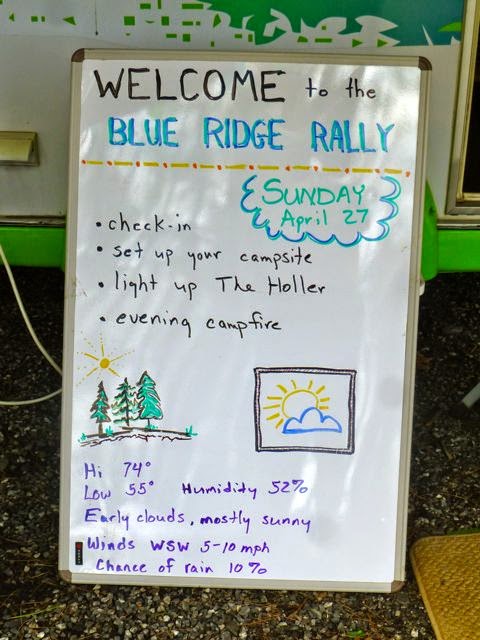 WELCOME to the
BLUE RIDGE RALLY
SUNDAY
April 27
• check-in
• set up your campsite
• light up The Holler
• evening campfire
Hi 74°
Low 55° Humidity 52%
Early clouds, mostly sunny
Winds WSW 5-10 mph
Chance of rain 10%